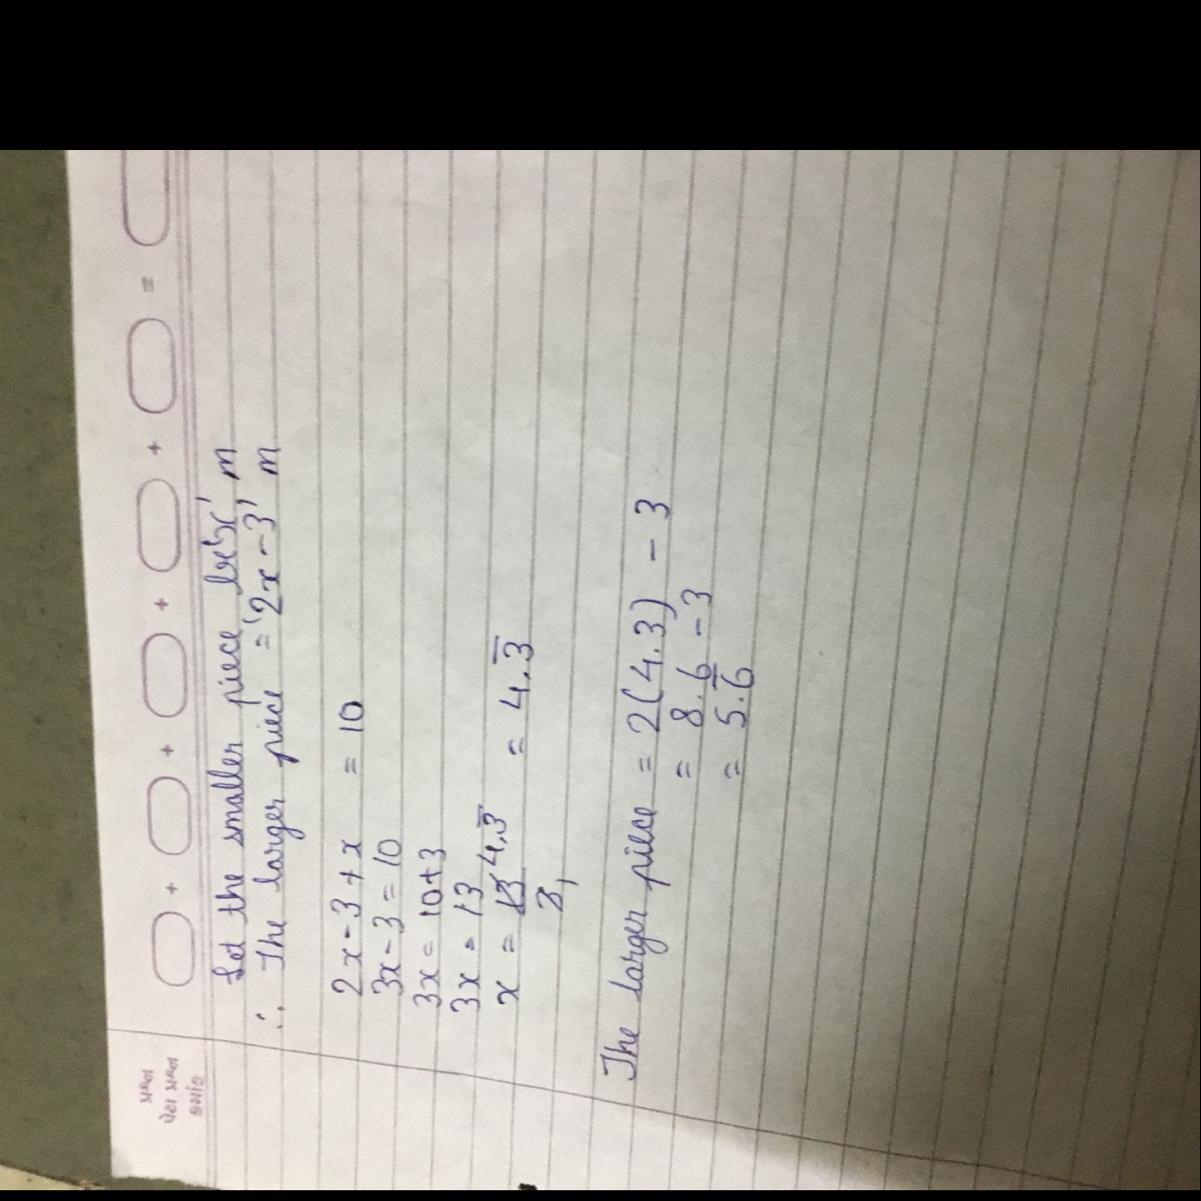 પ્રશ્ન
પેટા પ્રશ્ન
ક્રમાંક
+ + + + + =
Let the smaller piece be 'x' m
∴ The larger piece = '2x-3' m
2x-3+x = 10
3x-3 = 10
3x = 10+3
3x = 13
x = 13 4.3̅ = 4.3̅
3 1
The larger piece = 2(4.3) - 3
= 8.6 - 3
= 5.6̅